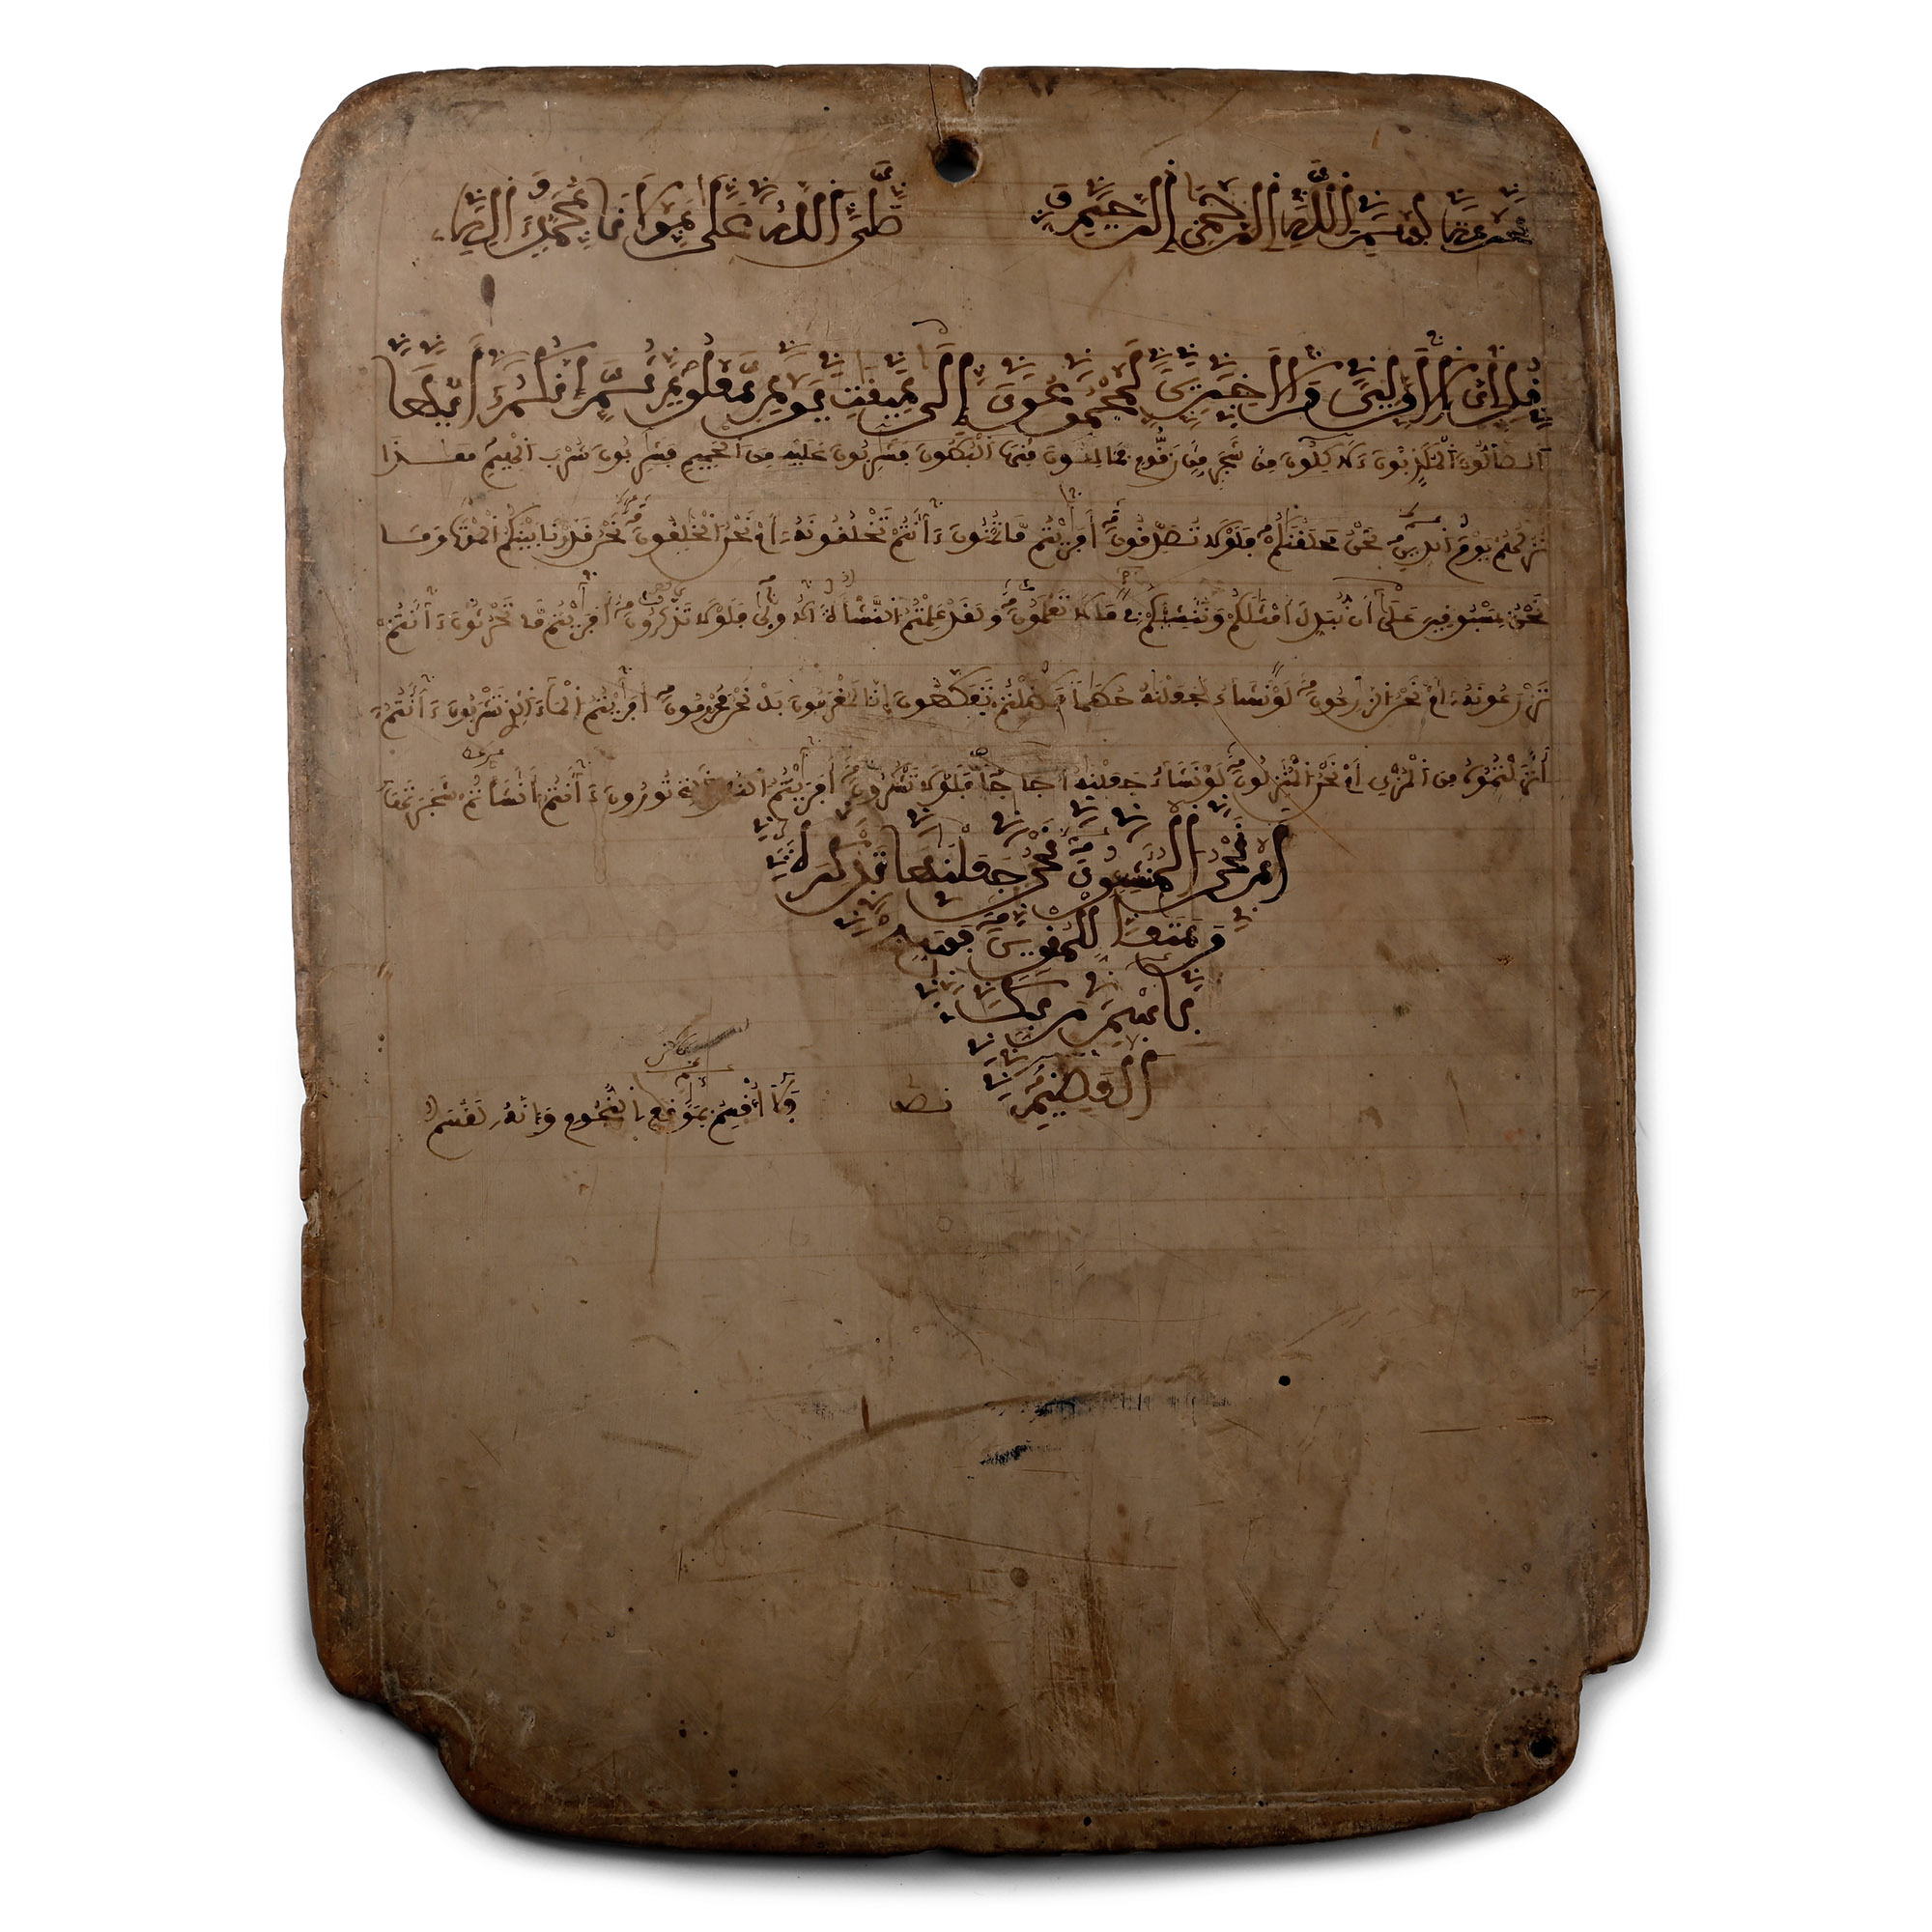 بسم الله الرحمن الرحيم صلى الله على سيدنا محمد وآله
قل إن الأولين والآخرين لمجموعون إلى ميقت يوم معلوم ثم إنكم أيها
الضالون المكذبون ءلاكلون من شجر من زقوم فمالئون منها البطون فشربون عليه من الحميم فشربون شرب الهيم هذا
نزلهم يوم الدين نحن خلقنكم فلولا تصدقون أفريتم ما تمنون ءأنتم تخلقونه أم نحن الخلقون نحن قدرنا بينكم الموت وما
نحن بمسبوقين على أن نبدل أمثلكم وننشئكم في ما لا تعلمون ولقد علمتم النشأة الاولى فلولا تذكرون أفريتم ما تحرثون ءأنتم
تزرعونه أم نحن الزرعون لو نشاء لجعلنه حطما فظلتم تفكهون إنا لمغرمون بل نحن محرومون أفريتم الماء الذي تشربون ءأنتم
أنزلتموه من المزن أم نحن المنزلون لو نشاء جعلنه أجاجا فلولا تشكرون أفريتم النار التي تورون ءأنتم أنشأتم شجرتها
أم نحن المنشئون نحن جعلنها تذكرة
ومتعا للمقوين فسبح
باسم ربك
العظيم
فلا أقسم بموقع النجوم وإنه لقسم